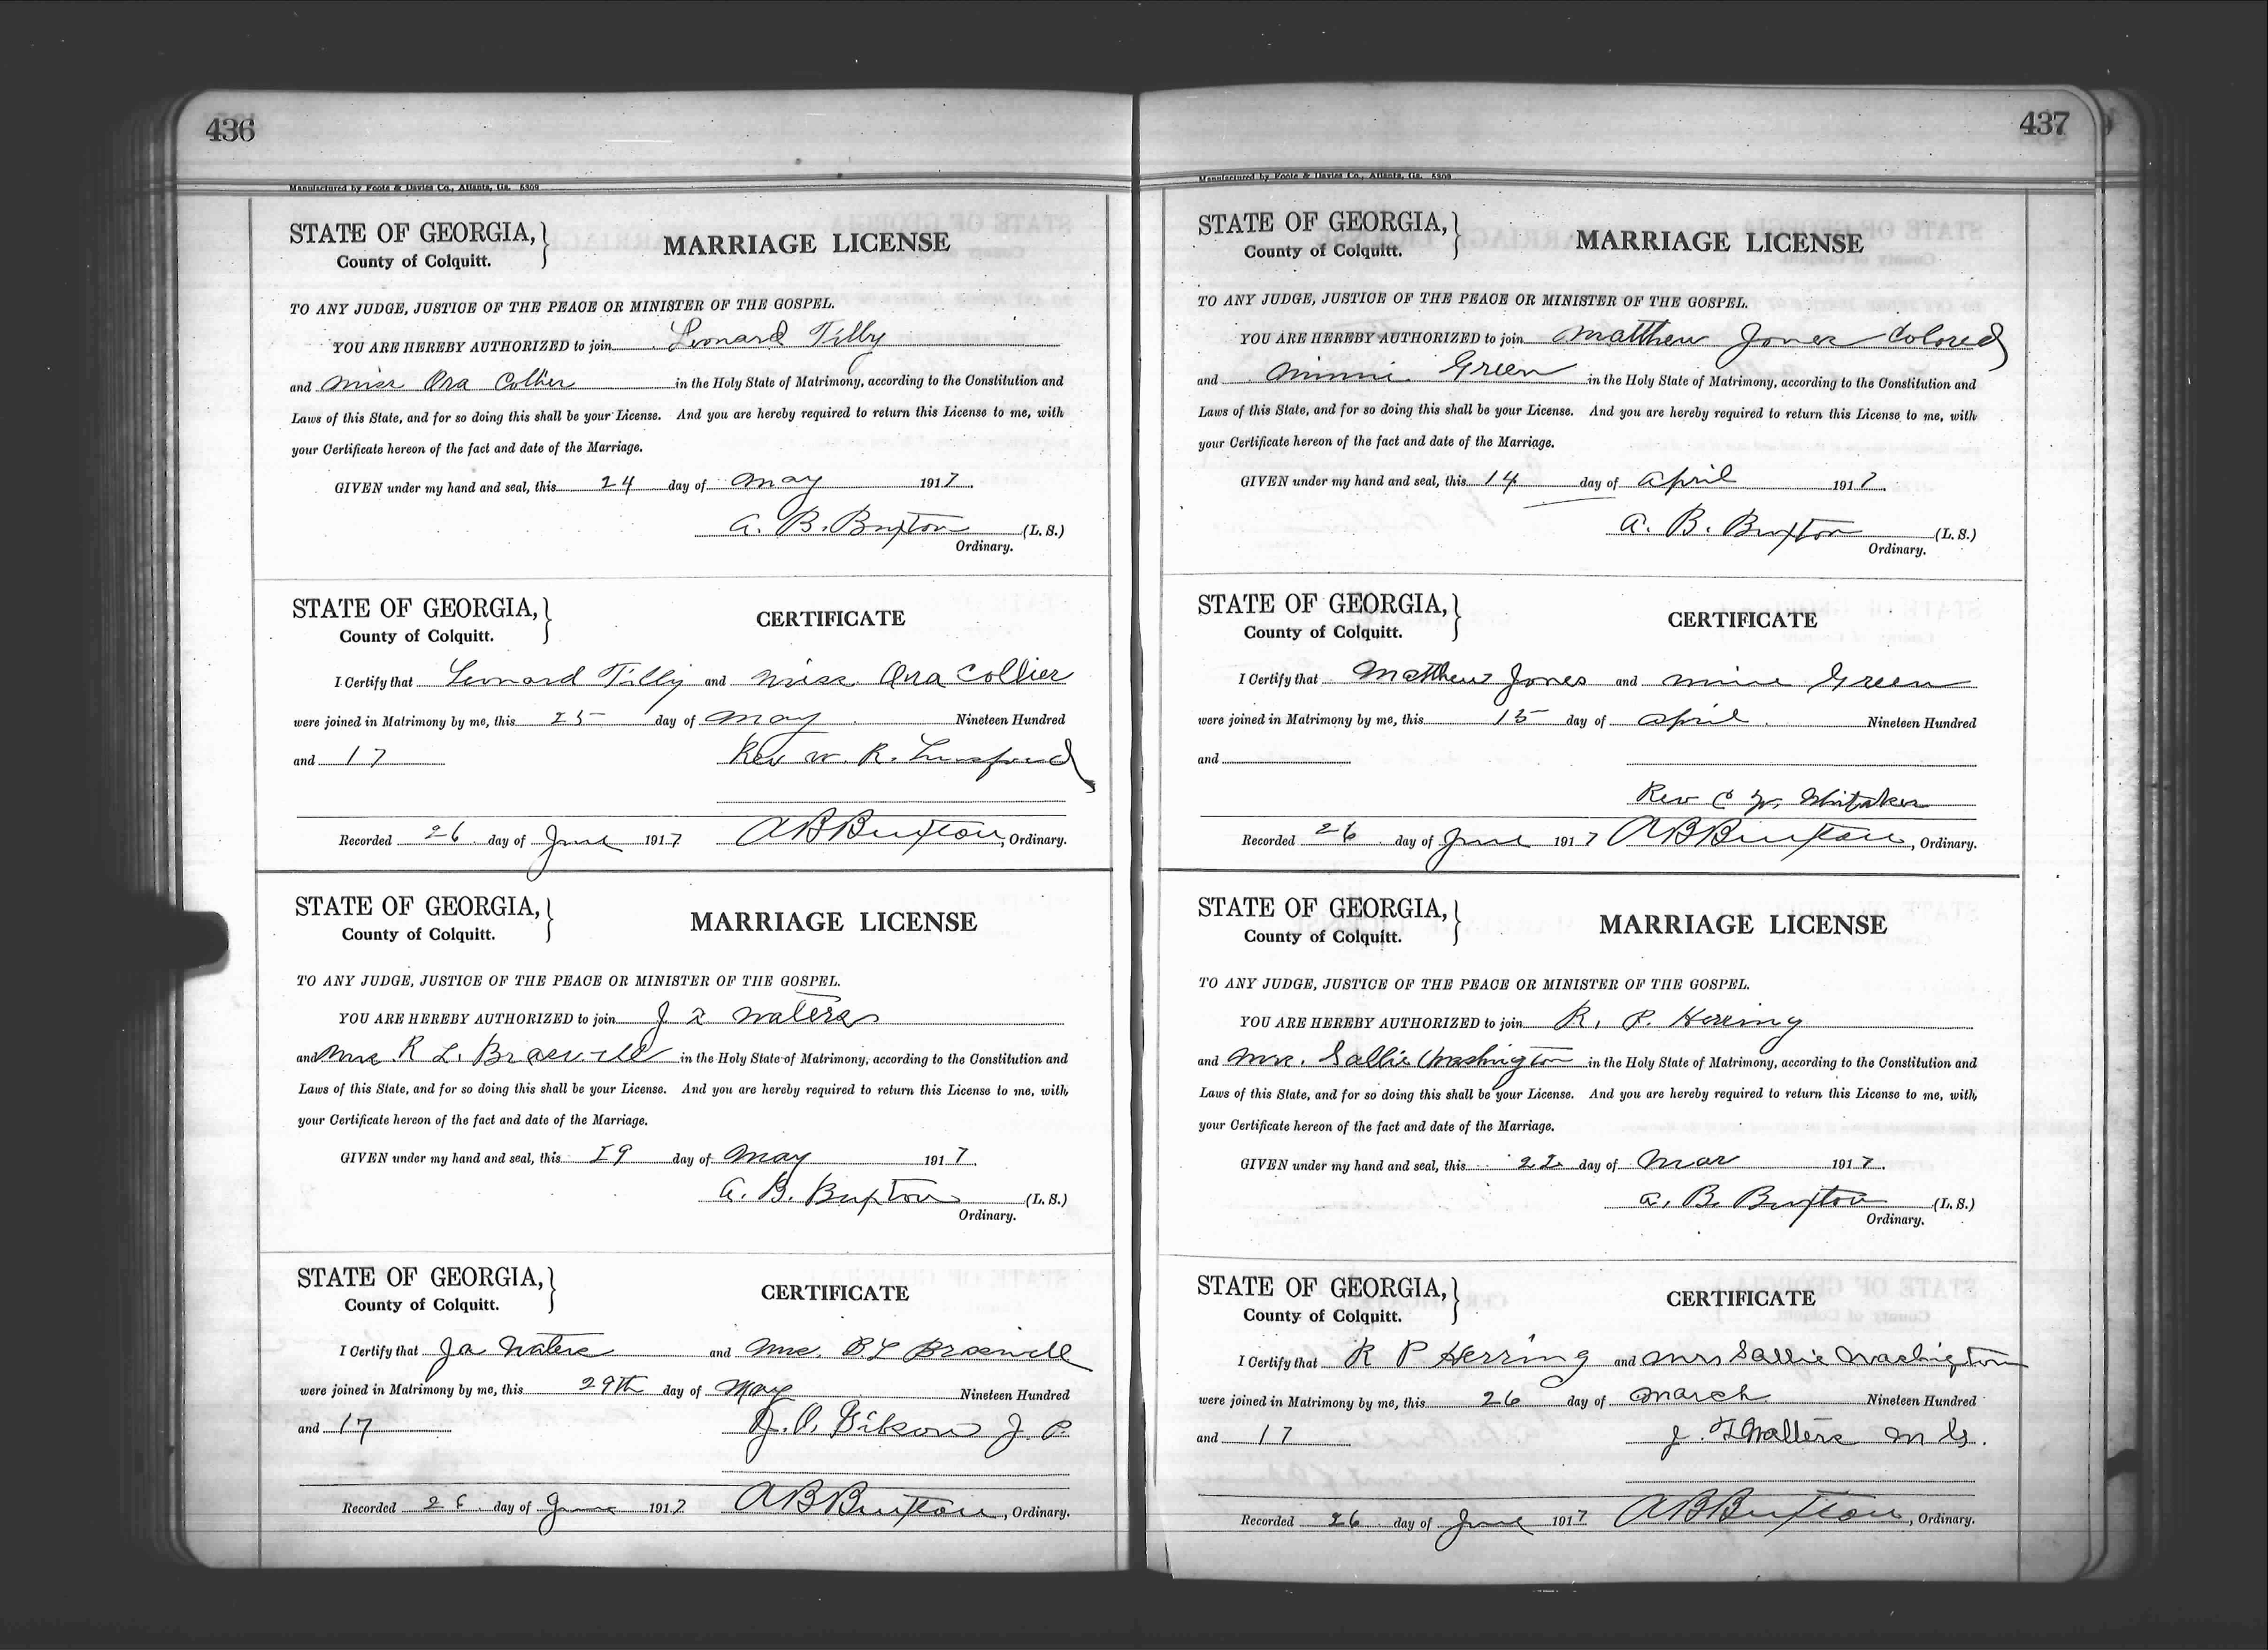 436
Manufactured by Foote & Davies Co., Atlanta, Ga. 5309
STATE OF GEORGIA,
County of Colquitt.
MARRIAGE LICENSE
TO ANY JUDGE, JUSTICE OF THE PEACE OR MINISTER OF THE GOSPEL.
YOU ARE HEREBY AUTHORIZED to join Leonard Tilly
and Miss Ora Collier in the Holy State of Matrimony, according to the Constitution and
Laws of this State, and for so doing this shall be your License. And you are hereby required to return this License to me, with
your Certificate hereon of the fact and date of the Marriage.
GIVEN under my hand and seal, this 24 day of May 1917.
A. B. Buxton (L. S.)
Ordinary.
STATE OF GEORGIA,
County of Colquitt.
CERTIFICATE
I Certify that Leonard Tilly and Miss. Ora Collier
were joined in Matrimony by me, this 25 day of May Nineteen Hundred
and 17 Rev W. R. Lunsford
Recorded 26 day of June 1917 A B Buxton, Ordinary.
STATE OF GEORGIA,
County of Colquitt.
MARRIAGE LICENSE
TO ANY JUDGE, JUSTICE OF THE PEACE OR MINISTER OF THE GOSPEL.
YOU ARE HEREBY AUTHORIZED to join J Waters
and Mrs. R L. Braswell in the Holy State of Matrimony, according to the Constitution and
Laws of this State, and for so doing this shall be your License. And you are hereby required to return this License to me, with
your Certificate hereon of the fact and date of the Marriage.
GIVEN under my hand and seal, this day of May 1917.
A. B. Buxton (L. S.)
Ordinary.
STATE OF GEORGIA,
County of Colquitt.
CERTIFICATE
I Certify that Ja Waters and Mrs. Braswell
were joined in Matrimony by me, this 29th day of May Nineteen Hundred
and 17 Gibson J. P.
Recorded day of June 1917 A B Buxton, Ordinary.
437
Manufactured by Foote & Davies Co., Atlanta, Ga. 5309
STATE OF GEORGIA,
County of Colquitt.
MARRIAGE LICENSE
TO ANY JUDGE, JUSTICE OF THE PEACE OR MINISTER OF THE GOSPEL.
YOU ARE HEREBY AUTHORIZED to join Matthew Jones Colored
and Minnie Green in the Holy State of Matrimony, according to the Constitution and
Laws of this State, and for so doing this shall be your License. And you are hereby required to return this License to me, with
your Certificate hereon of the fact and date of the Marriage.
GIVEN under my hand and seal, this 14 day of April 1917.
A. B. Buxton (L. S.)
Ordinary.
STATE OF GEORGIA,
County of Colquitt.
CERTIFICATE
I Certify that Matthew Jones and Minnie Green
were joined in Matrimony by me, this 15 day of April Nineteen Hundred
and
Rev C W. Whitaker
Recorded 26 day of June 1917 A B Buxton, Ordinary.
STATE OF GEORGIA,
County of Colquitt.
MARRIAGE LICENSE
TO ANY JUDGE, JUSTICE OF THE PEACE OR MINISTER OF THE GOSPEL.
YOU ARE HEREBY AUTHORIZED to join R. P. Herring
and Mrs. Sallie Washington in the Holy State of Matrimony, according to the Constitution and
Laws of this State, and for so doing this shall be your License. And you are hereby required to return this License to me, with
your Certificate hereon of the fact and date of the Marriage.
GIVEN under my hand and seal, this 22 day of Mar 1917.
A. B. Buxton (L. S.)
Ordinary.
STATE OF GEORGIA,
County of Colquitt.
CERTIFICATE
I Certify that R P Herring and Mrs Sallie Washington
were joined in Matrimony by me, this 26 day of March Nineteen Hundred
and 17 J. F Walters M G.
Recorded 26 day of June 1917 A B Buxton, Ordinary.